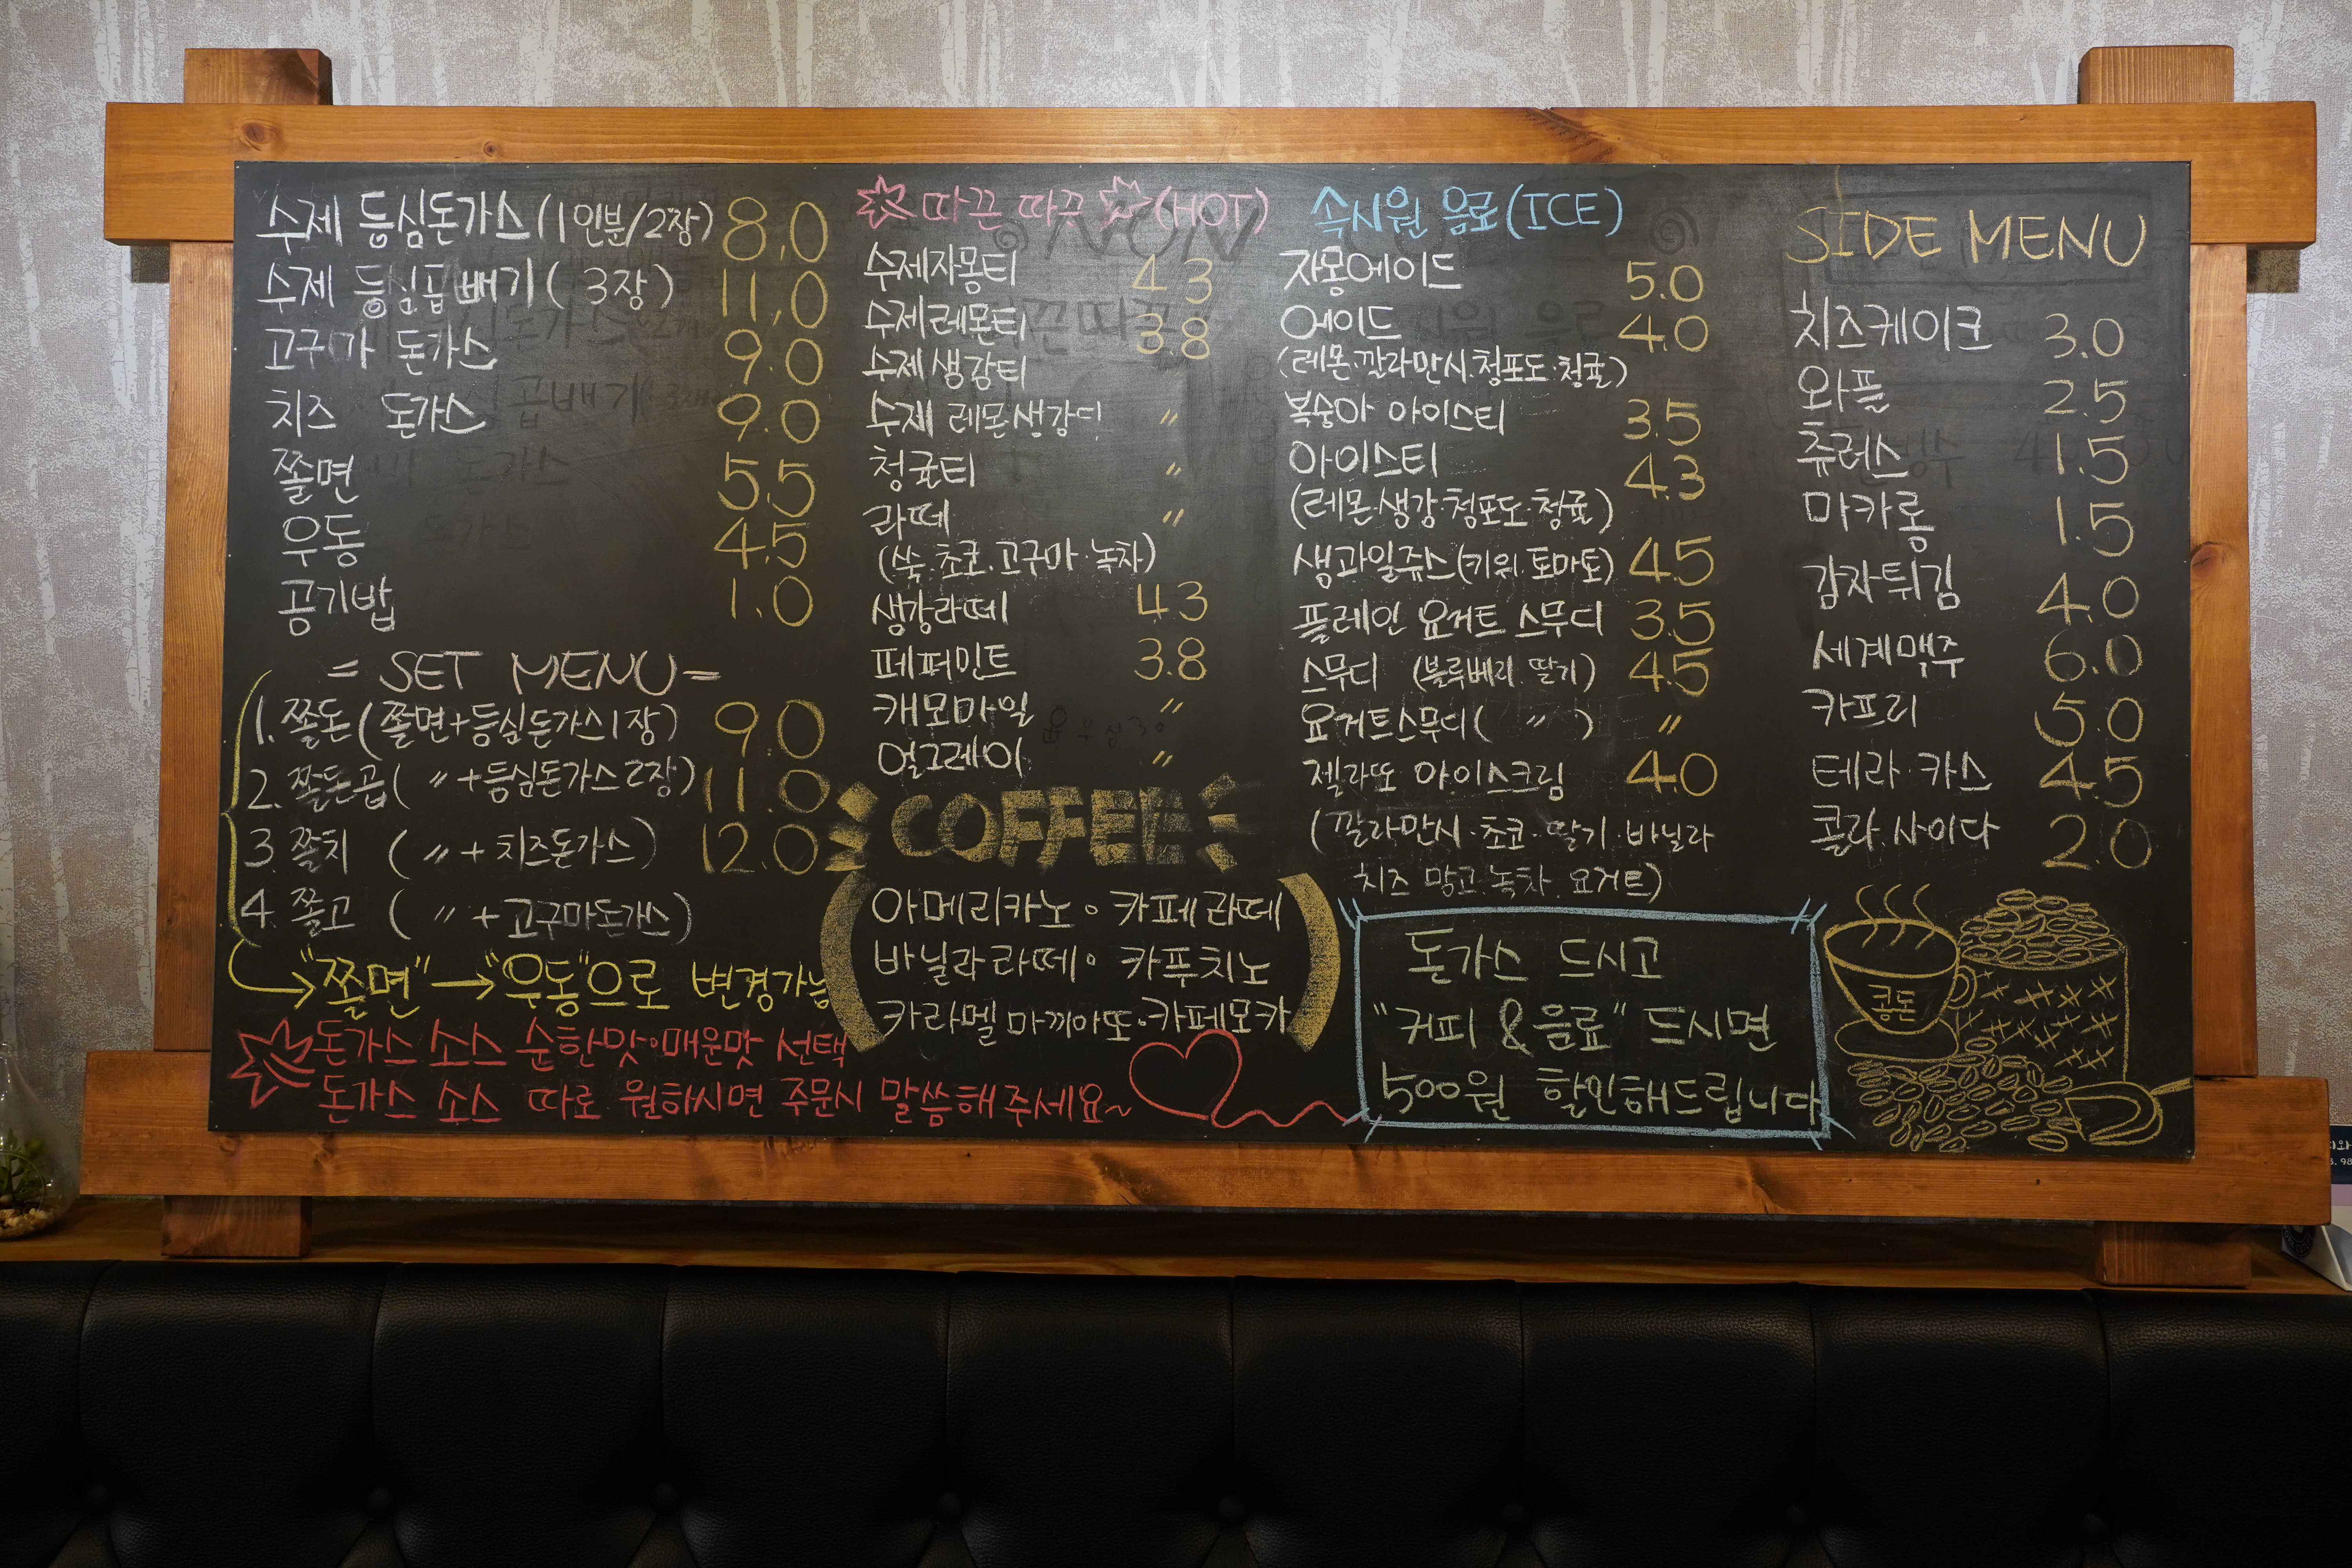 수제 등심돈가스(1인분/2장) 8,0
수제 등심곱배기( 3장) 11,0
고구마 돈가스 9.0
치즈 돈가스 9.0
쫄면 5.5
우동 4.5
공기밥 1.0
= SET MENU =
1. 쫄돈(쫄면+등심돈가스1장) 9.0
2. 쫄돈곱( 〃+등심돈가스2장) 11.0
3. 쫄치 ( 〃+치즈돈가스) 12.0
4. 쫄고 ( 〃+고구마돈가스)
"쫄면"→"우동"으로 변경가능
돈가스 소스 순한맛·매운맛 선택
돈가스 소스 따로 원하시면 주문시 말씀해주세요~
따끈 따끈 (HOT)
수제자몽티 4.3
수제레몬티 3.8
수제생강티
수제 레몬생강티 〃
청귤티 〃
라떼 〃
(쑥·초코·고구마·녹차)
생강라떼 4.3
페퍼민트 3.8
캐모마일 〃
얼그레이 〃
COFFEE
(아메리카노·카페라떼
바닐라라떼·카푸치노
카라멜마끼아또·카페모카)
속시원 음료(ICE)
자몽에이드 5.0
에이드 4.0
(레몬·깔라만시·청포도·청귤)
복숭아 아이스티 3.5
아이스티 4.3
(레몬·생강·청포도·청귤)
생과일쥬스(키위·토마토) 4.5
플레인 요거트 스무디 3.5
스무디 (블루베리·딸기) 4.5
요거트스무디( 〃 ) 〃
젤라또 아이스크림 4.0
(깔라만시·초코·딸기·바닐라
치즈·망고·녹차·요거트)
돈가스 드시고
"커피&음료" 드시면
500원 할인해드립니다
SIDE MENU
치즈케이크 3.0
와플 2.5
츄러스 1.5
마카롱 1.5
감자튀김 4.0
세계맥주 6.0
카프리 5.0
테라·카스 4.5
콜라·사이다 2.0
콩돈